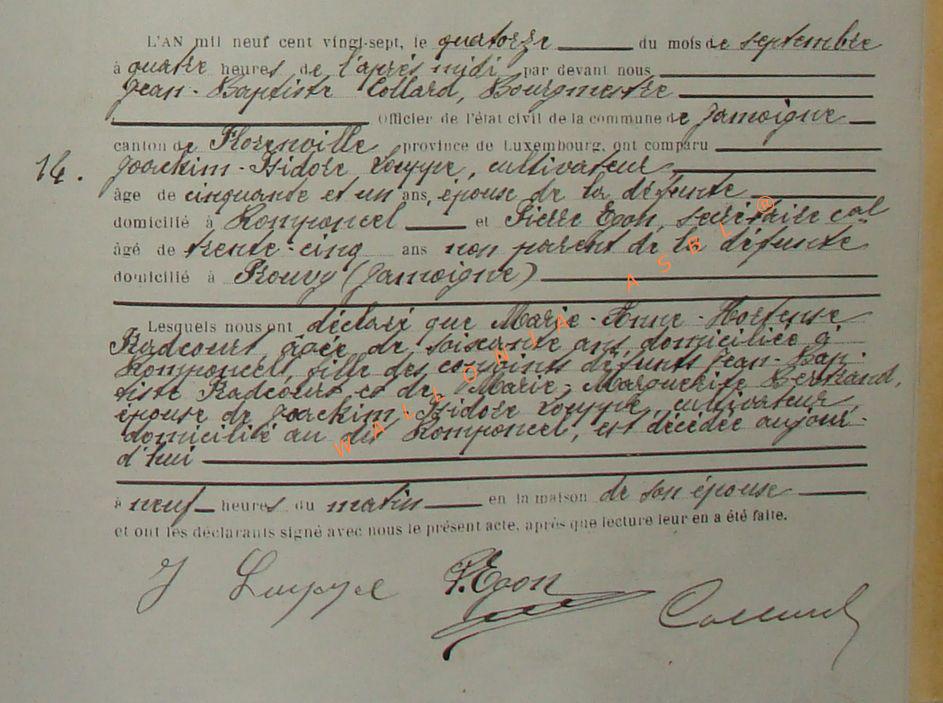 L'AN mil neuf cent vingt-sept, le quatorze du mois de septembre
à quatre heures de l'après midi par devant nous
Jean-Baptiste Collard, Bourgmestre
Officier de l'état civil de la commune de Jamoigne
canton de Florenville province de Luxembourg, ont comparu
14. Joackim-Isidore Louppe, cultivateur,
âge de cinquante et un ans, épouse de la défunte
domicilié à Romponcel et Pierre Egon, secrétaire cal
âgé de trente-cinq ans non parent de la défunte
domicilié à Prouvy (Jamoigne)
Lesquels nous ont déclaré que Marie-Anne-Hortense
Radcourt, âgée de soixante ans domiciliée à
Romponcel, fille des conjoints défunts Jean-Bap-
tiste Radcourt et de Marie-Marguerite Bertrand,
épouse de Joackim Isidore Louppe, cultivateur,
domicilié au dit Romponcel, est décédée aujour-
d'hui
à neuf heures du matin en la maison de son épouse
et ont les déclarants signé avec nous le présent acte, après que lecture leur en a été faite.
J Louppe P. Egon Collard
WALLONIA ASBL @